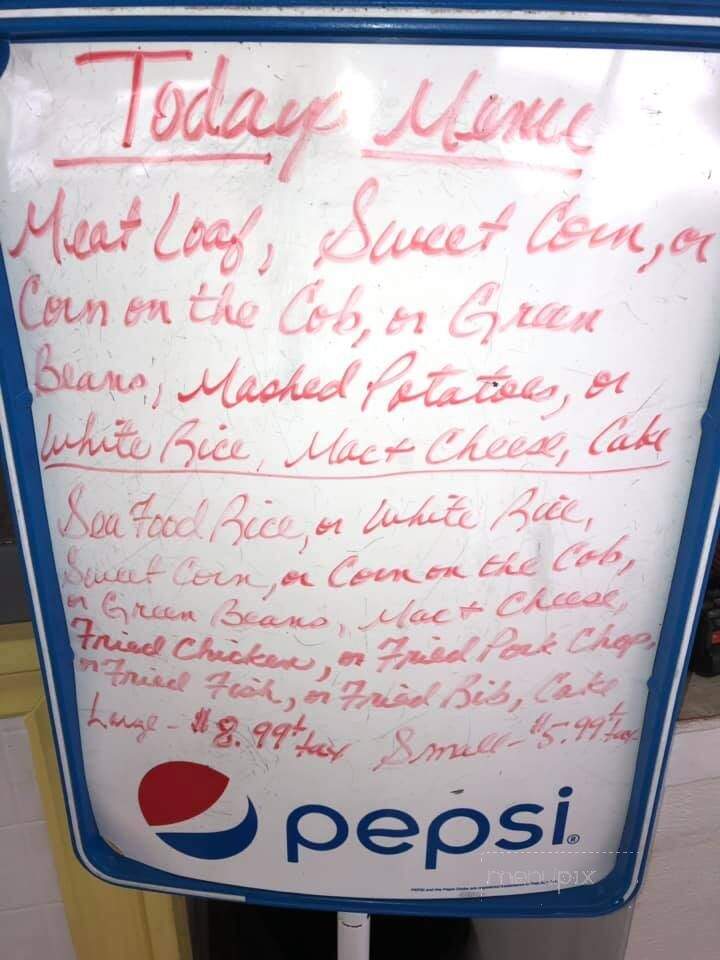 Todays Menu
Meat Loaf, Sweet Corn, or
Corn on the Cob, or Green
Beans, Mashed Potatoes, or
White Rice, Mac + Cheese, Cake
Sea Food Rice, or White Rice,
Sweet Corn, or Corn on the Cob,
or Green Beans, Mac + Cheese,
Fried Chicken, or Fried Pork Chop,
or Fried Fish, or Fried Rib, Cake
Large - $8.99 + tax Small - $5.99 + tax
pepsi®
menupix